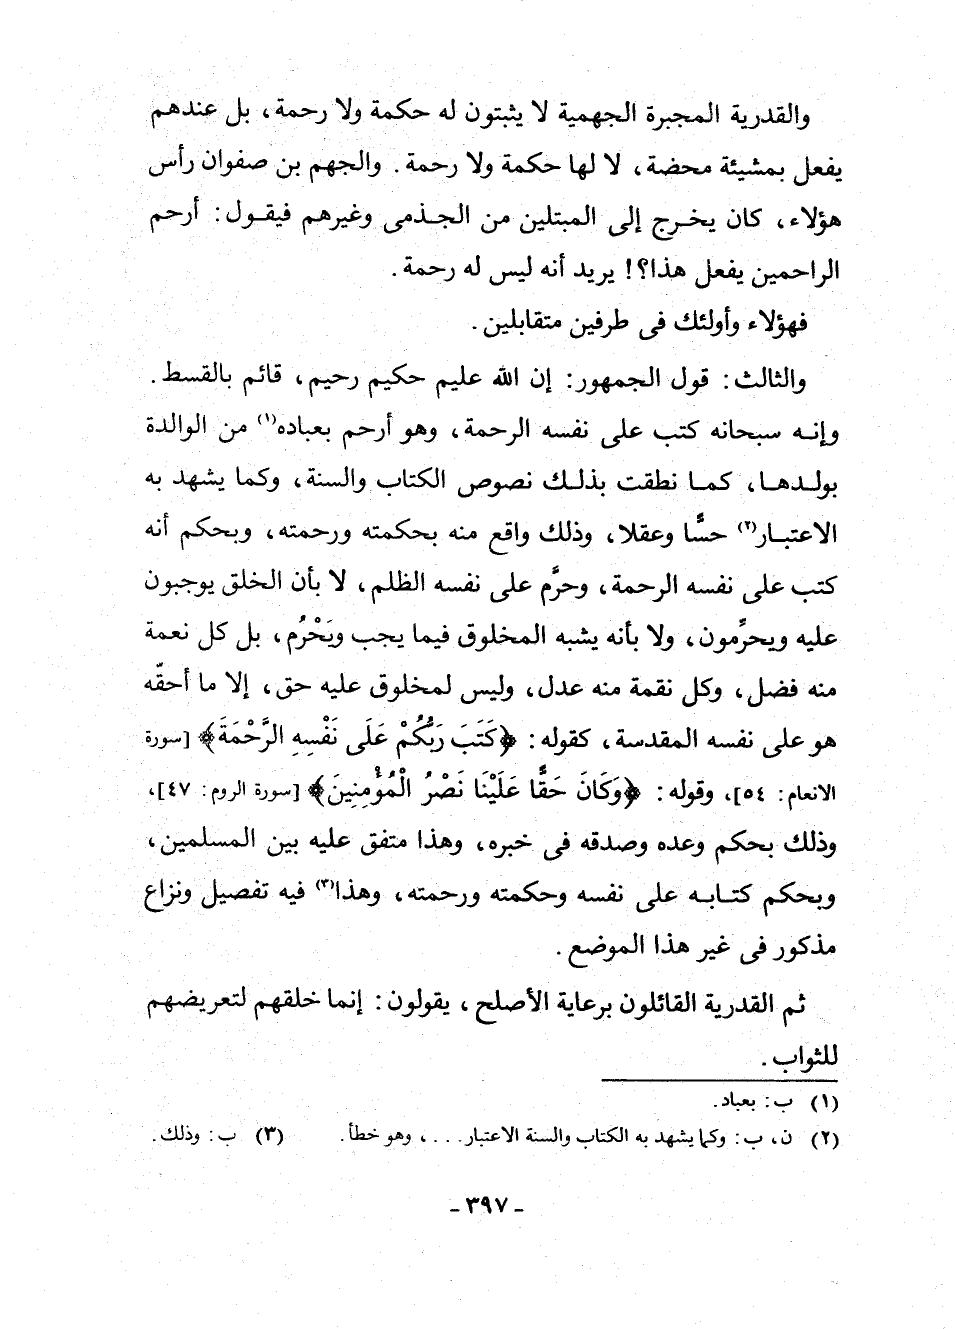 والقدرية المجبرة الجهمية لا يثبتون له حكمة ولا رحمة، بل عندهم
يفعل بمشيئة محضة، لا لها حكمة ولا رحمة. والجهم بن صفوان رأس
هؤلاء، كان يخرج إلى المبتلين من الجذمى وغيرهم فيقول: أرحم
الراحمين يفعل هذا؟! يريد أنه ليس له رحمة.
فهؤلاء وأولئك فى طرفين متقابلين.
والثالث: قول الجمهور: إن الله عليم حكيم رحيم، قائم بالقسط.
وإنه سبحانه كتب على نفسه الرحمة، وهو أرحم بعباده(١) من الوالدة
بولدها، كما نطقت بذلك نصوص الكتاب والسنة، وكما يشهد به
الاعتبار(٢) حسًّا وعقلا، وذلك واقع منه بحكمته ورحمته، وبحكم أنه
كتب على نفسه الرحمة، وحرَّم على نفسه الظلم، لا بأن الخلق يوجبون
عليه ويحرِّمون، ولا بأنه يشبه المخلوق فيما يجب ويَحْرُم، بل كل نعمة
منه فضل، وكل نقمة منه عدل، وليس لمخلوق عليه حق، إلا ما أحقّه
هو على نفسه المقدسة، كقوله: ﴿كَتَبَ رَبُّكُمْ عَلَى نَفْسِهِ الرَّحْمَةَ﴾ [سورة
الانعام: ٥٤]، وقوله: ﴿وَكَانَ حَقًّا عَلَيْنَا نَصْرُ الْمُؤْمِنِينَ﴾ [سورة الروم: ٤٧]،
وذلك بحكم وعده وصدقه فى خبره، وهذا متفق عليه بين المسلمين،
وبحكم كتابه على نفسه وحكمته ورحمته، وهذا(٣) فيه تفصيل ونزاع
مذكور فى غير هذا الموضع.
ثم القدرية القائلون برعاية الأصلح، يقولون: إنما خلقهم لتعريضهم
للثواب.
(١) ب: بعباد.
(٢) ن، ب: وكما يشهد به الكتاب والسنة الاعتبار...، وهو خطأ. (٣) ب: وذلك.
- ٣٩٧ -